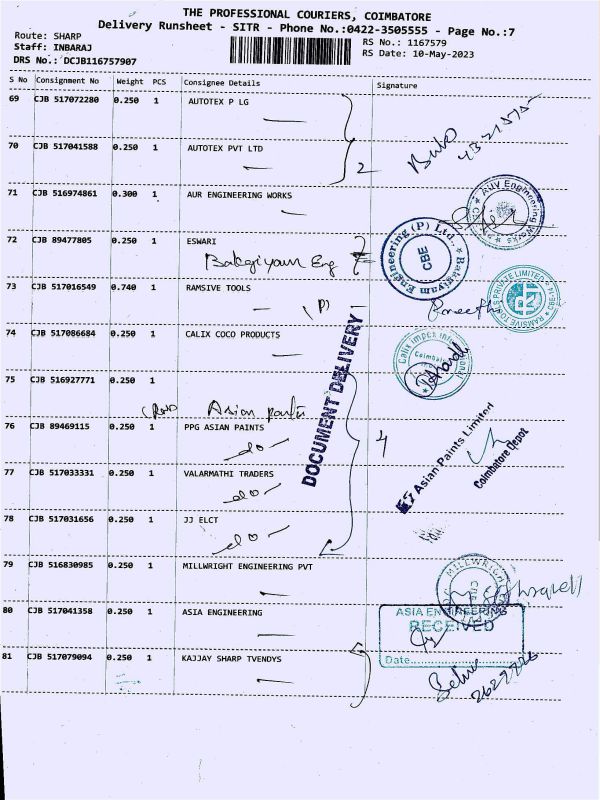 THE PROFESSIONAL COURIERS, COIMBATORE
Delivery Runsheet - SITR - Phone No.:0422-3505555 - Page No.:7
Route: SHARP
Staff: INBARAJ
DRS No.: DCJB116757907
RS No.: 1167579
RS Date: 10-May-2023
S No Consignment No Weight PCS Consignee Details Signature
69 CJB 517072280 0.250 1 AUTOTEX P LG
70 CJB 517041588 0.250 1 AUTOTEX PVT LTD
2
71 CJB 516974861 0.300 1 AUR ENGINEERING WORKS
AUV Engineering Works
72 CJB 89477805 0.250 1 ESWARI
Bakgiyam Eng
Bakgiyam Engineering (P) Ltd.,
CBE
73 CJB 517016549 0.740 1 RAMSIVE TOOLS
(P)
RAMSIVE TOOLS PRIVATE LIMITED
Preethi
74 CJB 517086684 0.250 1 CALIX COCO PRODUCTS
Calix Impex International
Coimbatore
DOCUMENT DELIVERY
75 CJB 516927771 0.250 1
Asian paints
76 CJB 89469115 0.250 1 PPG ASIAN PAINTS
do
4
Asian Paints Limited
Coimbatore Depot
77 CJB 517033331 0.250 1 VALARMATHI TRADERS
do
78 CJB 517031656 0.250 1 JJ ELCT
do
79 CJB 516830985 0.250 1 MILLWRIGHT ENGINEERING PVT
MILLWRIGHT
80 CJB 517041358 0.250 1 ASIA ENGINEERING
ASIA ENGINEERING
RECEIVED
Date
81 CJB 517079094 0.250 1 KAJJAY SHARP TVENDYS